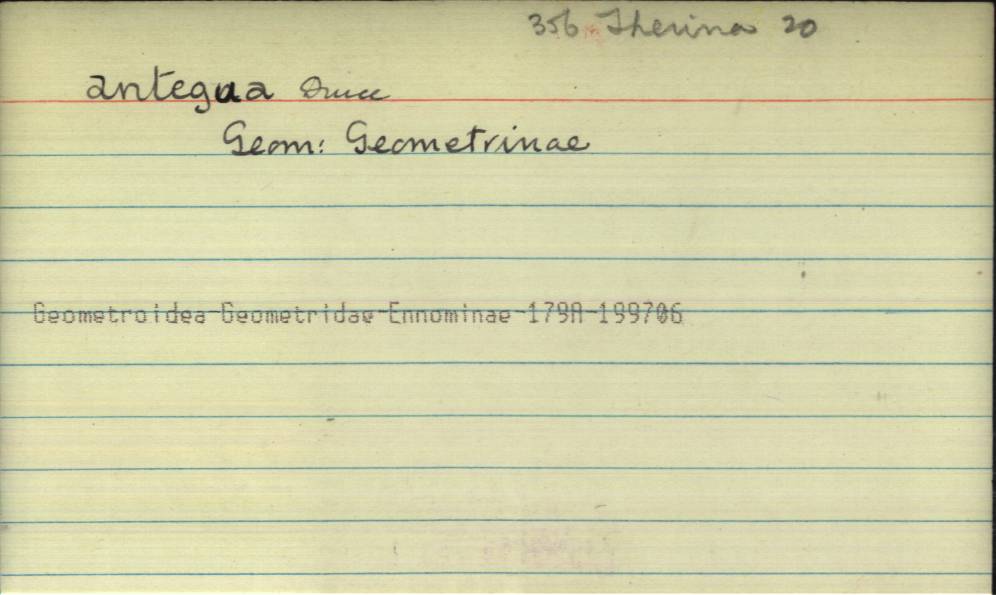 356 Therina 20
antegua Druce
Geom: Geometrinae
Geometroidea-Geometridae-Ennominae-179A-199706